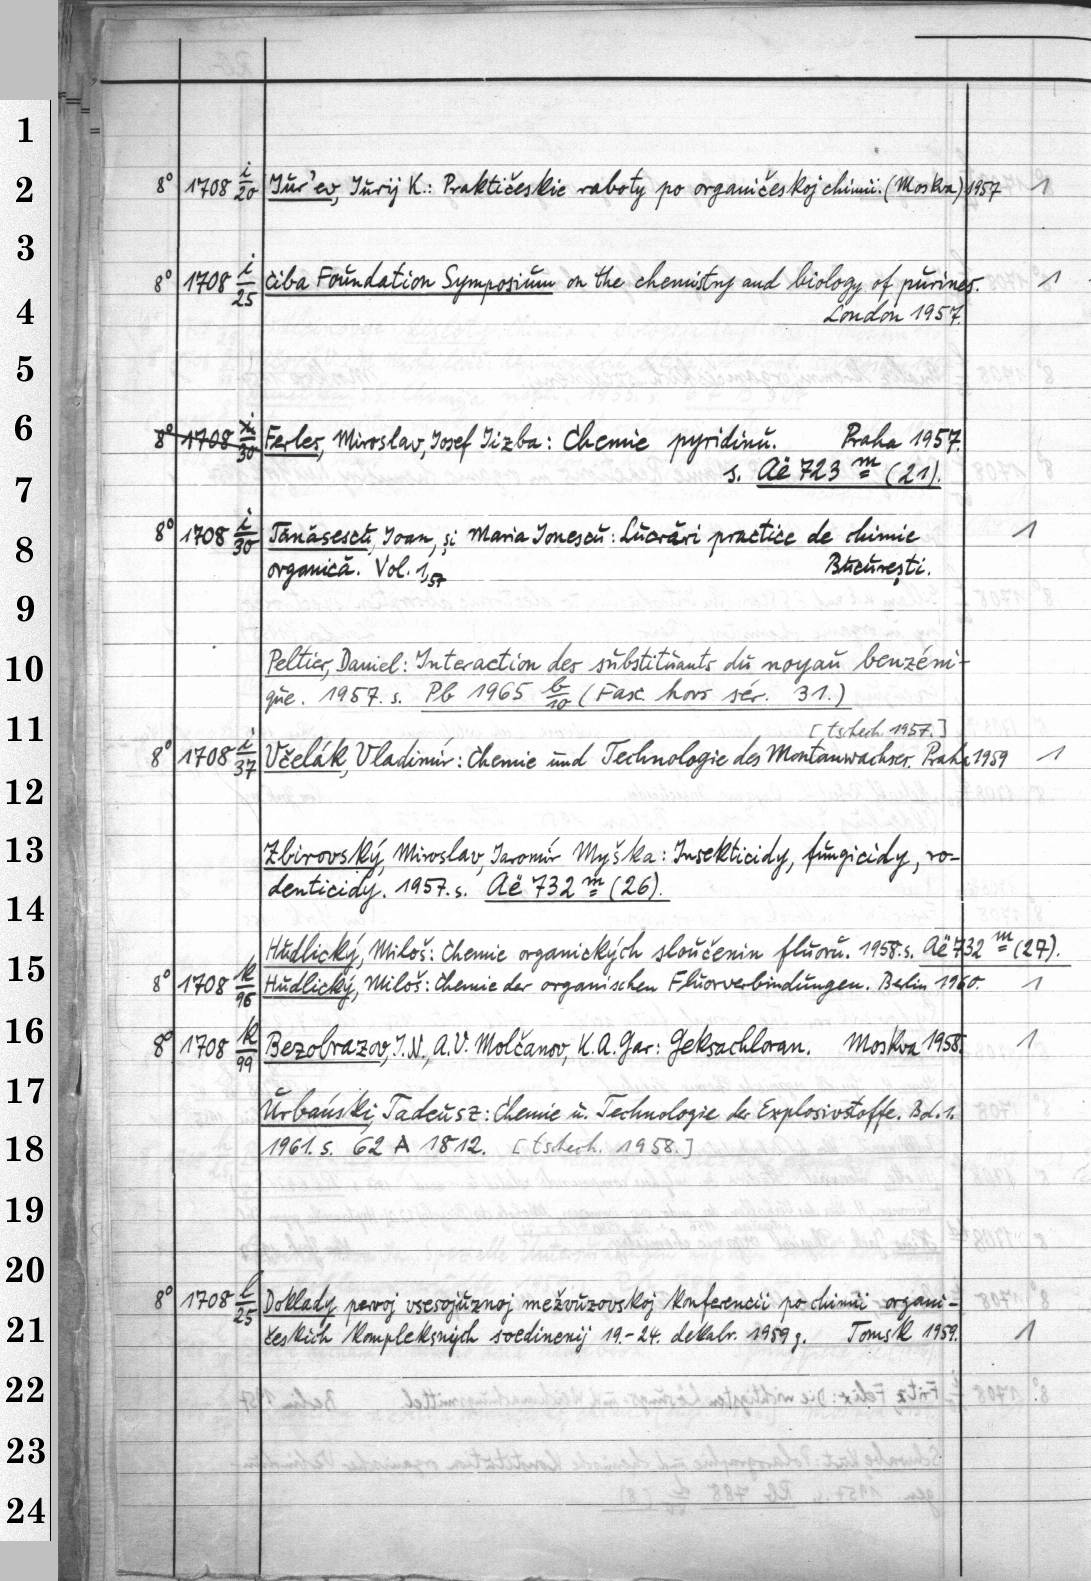 1
2
8° 1708 i/20 Jur'ev, Jurij K.: Praktičeskie raboty po organičeskoj chimii. (Moskva) 1957 1
3
8° 1708 i/25 Ciba Foundation Symposium on the chemistry and biology of purines. 1
4
London 1957.
5
6
8° 1708 i/30 Ferles, Miroslav, Josef Jizba: Chemie pyridinu. Praha 1957.
s. Aë 723 m (21).
7
8° 1708 i/30 Tănăsescu, Ioan, și Maria Ionescu: Lucrări practice de chimie 1
8
organică. Vol. 1, 57 București.
9
10
Peltier, Daniel: Interaction des substituants du noyau benzéni-
que. 1957. s. Pb 1965 b/10 (Fasc. hors sér. 31.)
11
[tschech. 1957.]
8° 1708 i/37 Včelák, Vladimír: Chemie und Technologie des Montanwachses. Praha 1959 1
12
13
Zbirovský, Miroslav, Jaromír Myška: Insekticidy, fungicidy, ro-
denticidy. 1957. s. Aë 732 m (26).
14
Hudlický, Miloš: Chemie organických sloučenin fluoru. 1958. s. Aë 732 m (27).
15
8° 1708 k/96 Hudlický, Miloš: Chemie der organischen Fluorverbindungen. Berlin 1960. 1
16
8° 1708 k/99 Bezobrazov, J. N., A. V. Molčanov, K. A. Gar: Geksachloran. Moskva 1958. 1
17
Urbański, Tadeusz: Chemie u. Technologie der Explosivstoffe. Bd. 1.
18
1961. s. 62 A 1812. [tschech. 1958.]
19
20
8° 1708 l/25 Doklady pervoj vsesojuznoj mežvuzovskoj konferencii po chimii organi-
21
českich kompleksnych soedinenij 19.-24. dekabr. 1959 g. Tomsk 1959. 1
22
23
24